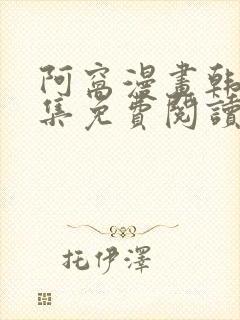 阿窩漫畫韓
集免費閱讀
托伊澤